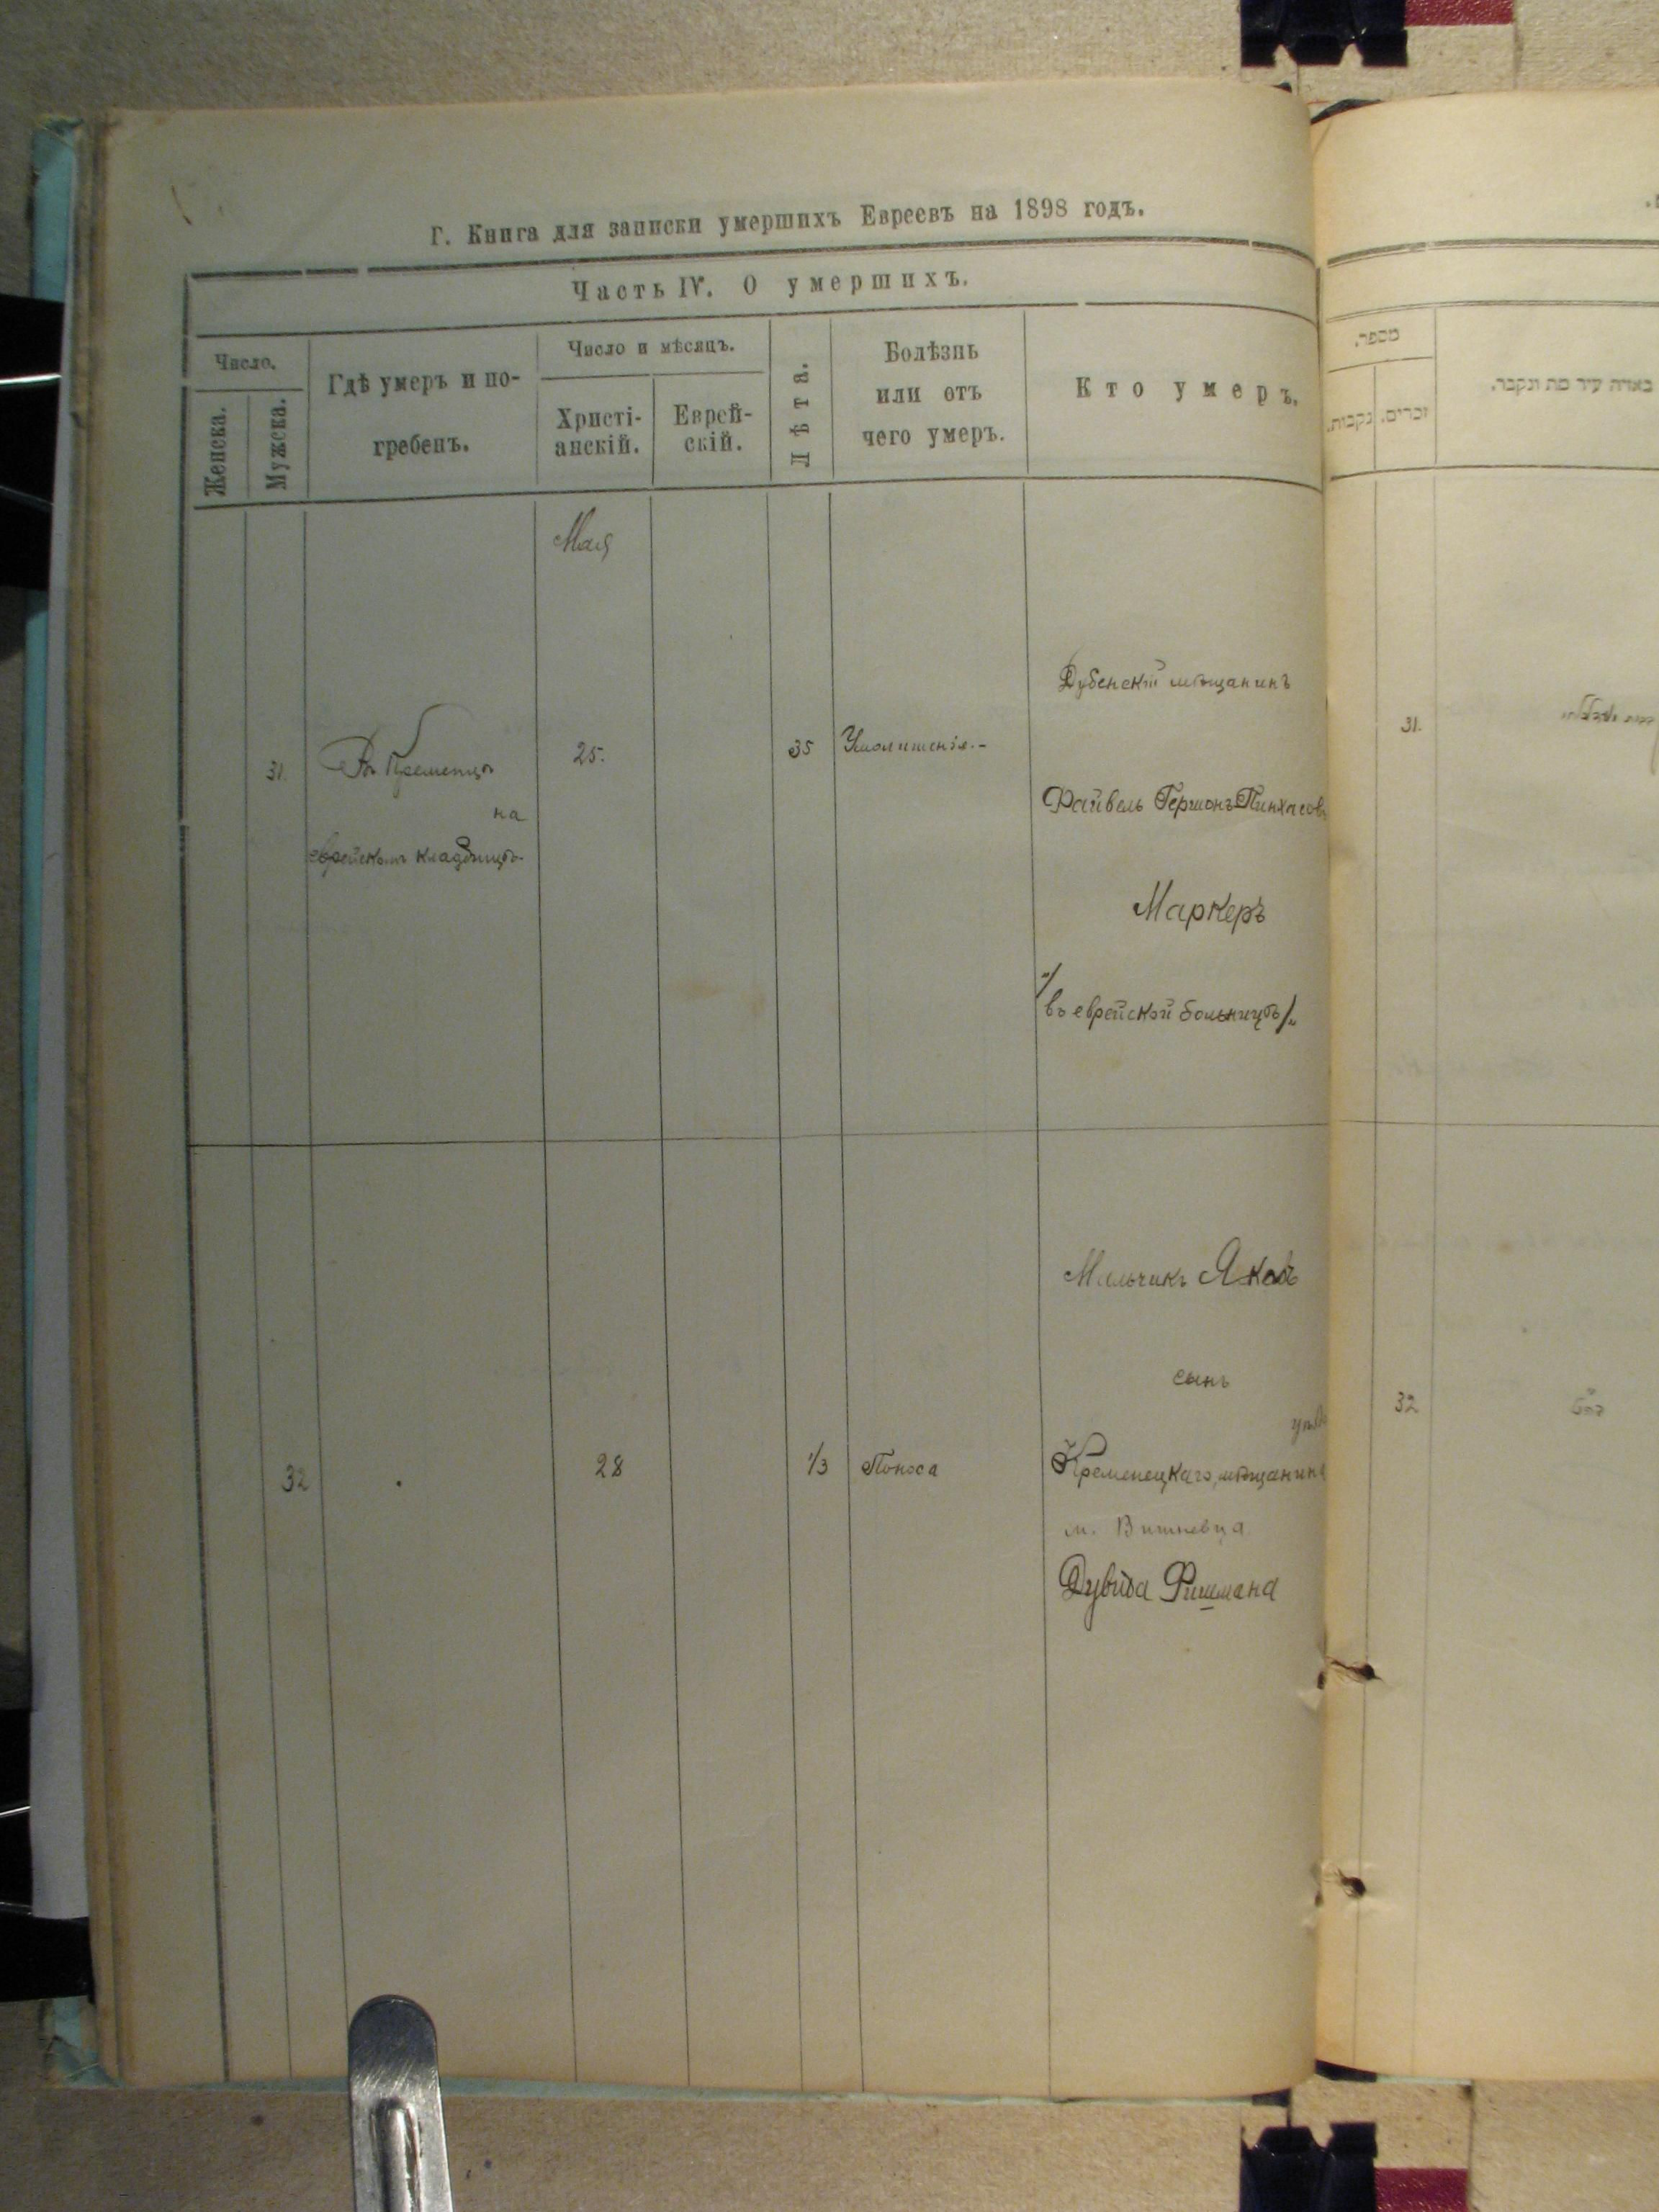 Г. Книга для записки умершихъ Евреевъ на 1898 годъ.
Часть IV. О умершихъ.
Число.
Женска.
Мужска.
Гдѣ умеръ и по-
гребенъ.
Число и мѣсяцъ.
Христі-
анскій.
Еврей-
скій.
Лѣта.
Болѣзнь
или отъ
чего умеръ.
Кто умеръ.
Мая
31.
Въ Кременцѣ
на
еврейскомъ кладбищѣ
25.
35
Умопишенія.-
Дубенскій мѣщанинъ
Файвель Гершонъ Пинхасовъ
Маркеръ
"/въ еврейской больницѣ/"
32
28
1/3
Поноса
Мальчикъ Яковъ
сынъ
Кременецкаго, мѣщанина
м. Вишневца
Дувида Фишмана
מספר.
זכרים.
נקבות.
באיזה עיר מת ונקבר.
31.
32